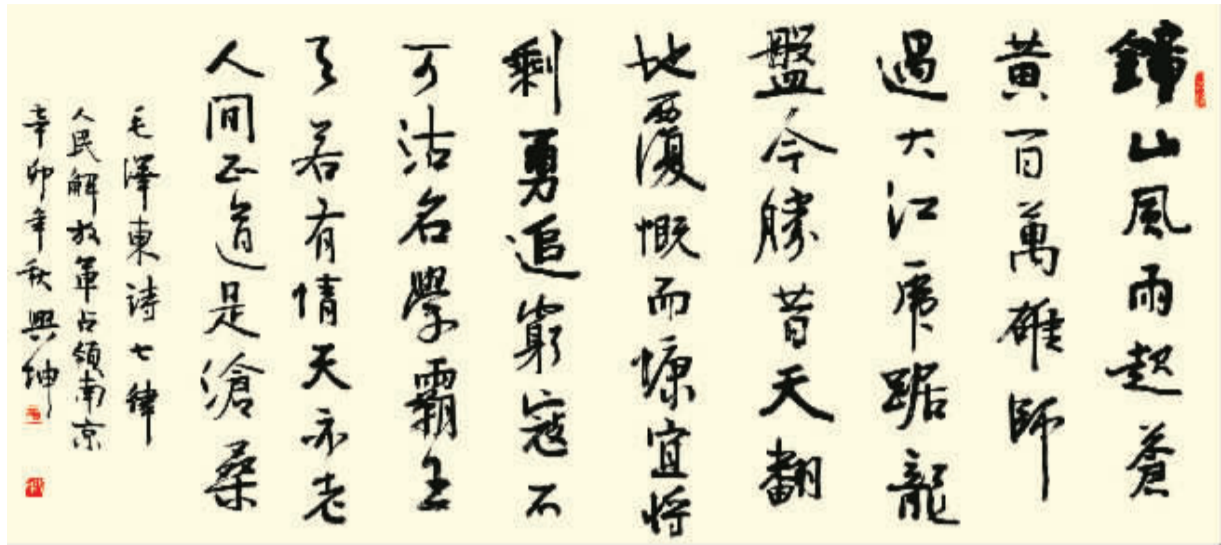 鐘山風雨起蒼
黃百萬雄師
過大江虎踞龍
盤今勝昔天翻
地覆慨而慷宜將
剩勇追窮寇不
可沽名學霸王
天若有情天亦老
人間正道是滄桑
毛澤東詩七律
人民解放軍占領南京
辛卯年秋興紳